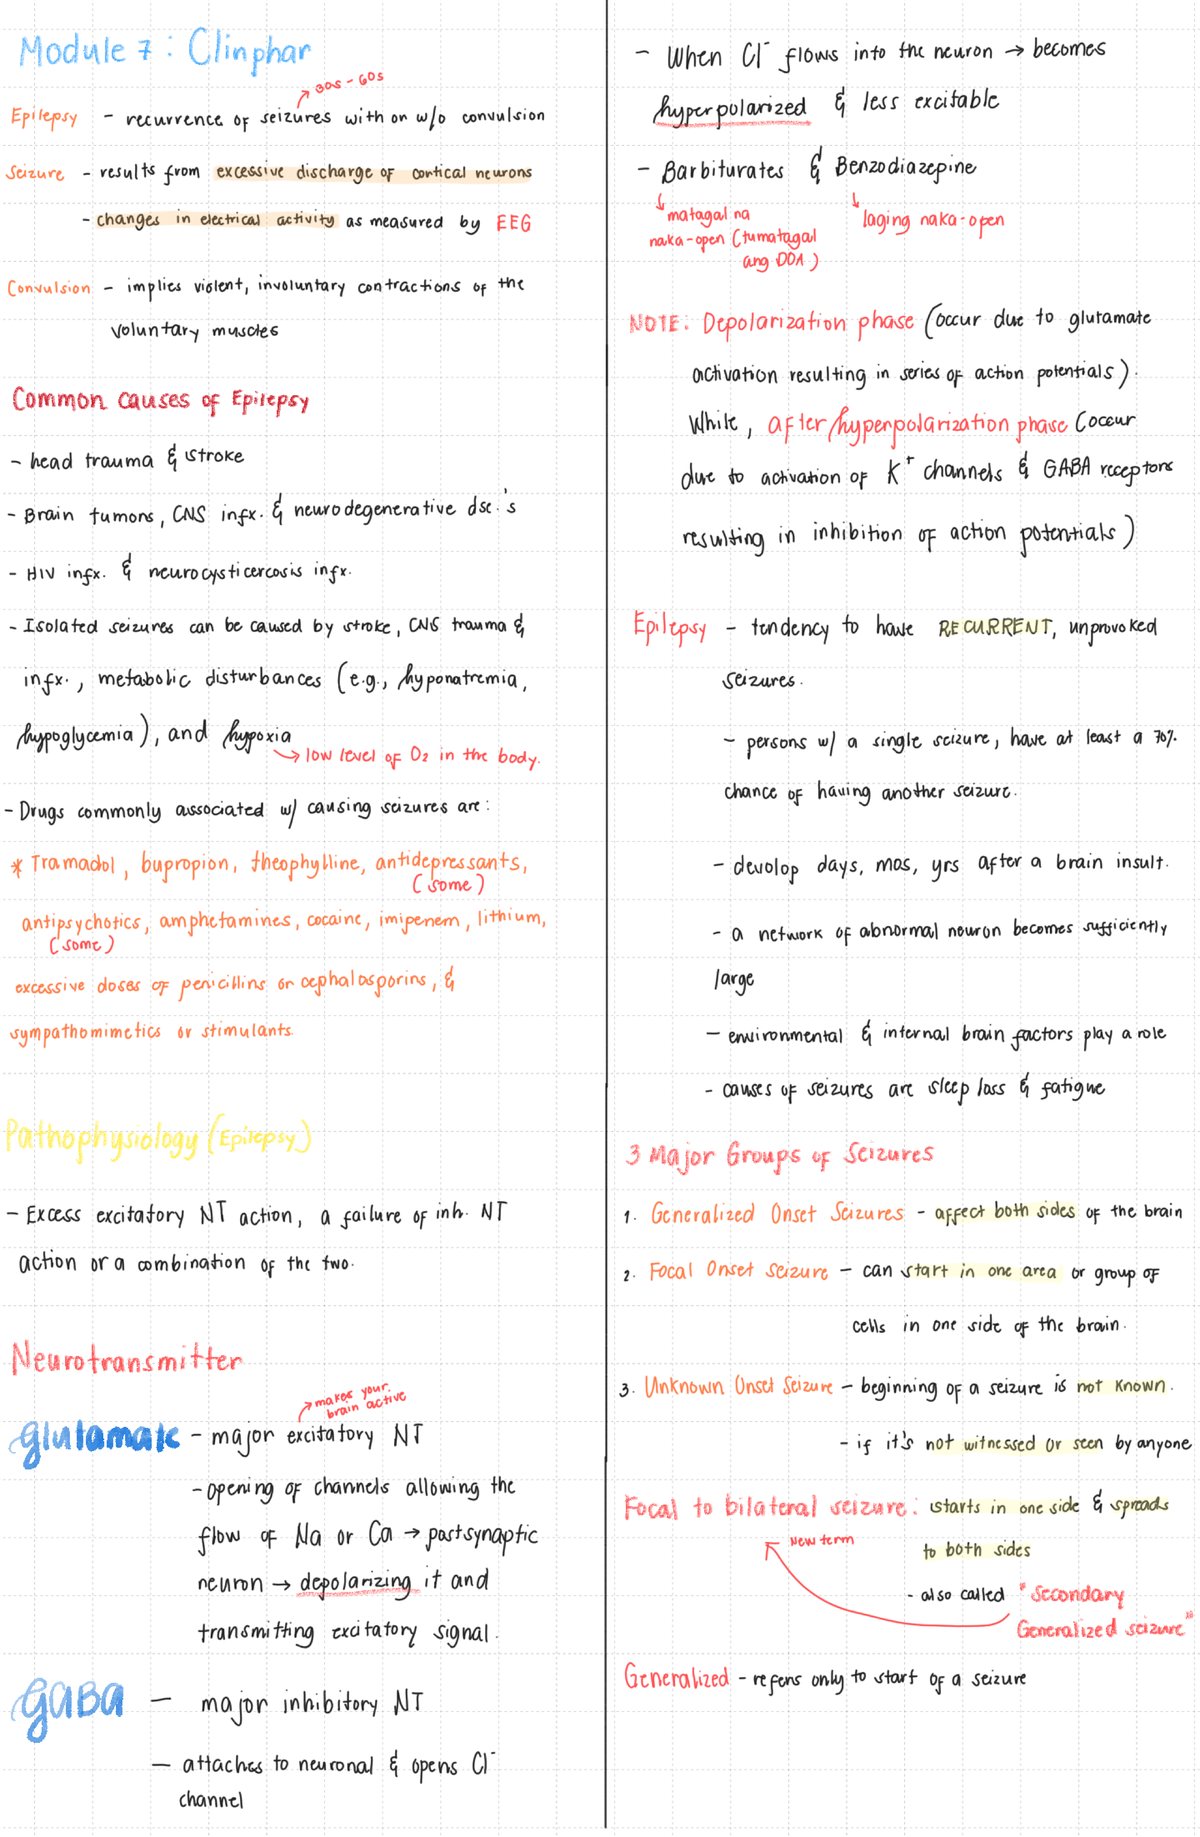 Module 7 : Clinphar
30s - 60s
Epilepsy - recurrence of seizures with or w/o convulsion
Seizure - results from excessive discharge of cortical neurons
- changes in electrical activity as measured by EEG
Convulsion - implies violent, involuntary contractions of the
voluntary muscles
Common causes of Epilepsy
- head trauma & stroke
- Brain tumors, CNS infx. & neurodegenerative dse.'s
- HIV infx. & neurocysticercosis infx.
- Isolated seizures can be caused by stroke, CNS trauma &
infx., metabolic disturbances (e.g., hyponatremia,
hypoglycemia), and hypoxia
→ low level of O2 in the body.
- Drugs commonly associated w/ causing seizures are:
* Tramadol, bupropion, theophylline, antidepressants,
(some)
antipsychotics, amphetamines, cocaine, imipenem, lithium,
(some)
excessive doses of penicillins or cephalosporins, &
sympathomimetics or stimulants.
Pathophysiology (Epilepsy)
- Excess excitatory NT action, a failure of inh. NT
action or a combination of the two.
Neurotransmitter
→ makes your
brain active
glutamate - major excitatory NT
- opening of channels allowing the
flow of Na or Ca → postsynaptic
neuron → depolarizing it and
transmitting excitatory signal.
GABA - major inhibitory NT
- attaches to neuronal & opens Cl⁻
channel
- When Cl⁻ flows into the neuron → becomes
hyperpolarized & less excitable
- Barbiturates & Benzodiazepine
↳ matagal na ↳ laging naka-open
naka-open (tumatagal
ang DOA)
NOTE: Depolarization phase (occur due to glutamate
activation resulting in series of action potentials).
While, after/hyperpolarization phase (occur
due to activation of K⁺ channels & GABA receptors
resulting in inhibition of action potentials)
Epilepsy - tendency to have RECURRENT, unprovoked
seizures.
- persons w/ a single seizure, have at least a 70%
chance of having another seizure.
- devolop days, mos, yrs after a brain insult.
- a network of abnormal neuron becomes sufficiently
large
- environmental & internal brain factors play a role
- causes of seizures are sleep loss & fatigue
3 Major Groups of Seizures
1. Generalized Onset Seizures - affect both sides of the brain
2. Focal Onset Seizure - can start in one area or group of
cells in one side of the brain.
3. Unknown Onset Seizure - beginning of a seizure is not known.
- if it's not witnessed or seen by anyone
Focal to bilateral seizure: starts in one side & spreads
New term
to both sides
- also called "Secondary
Generalized seizure"
Generalized - refers only to start of a seizure